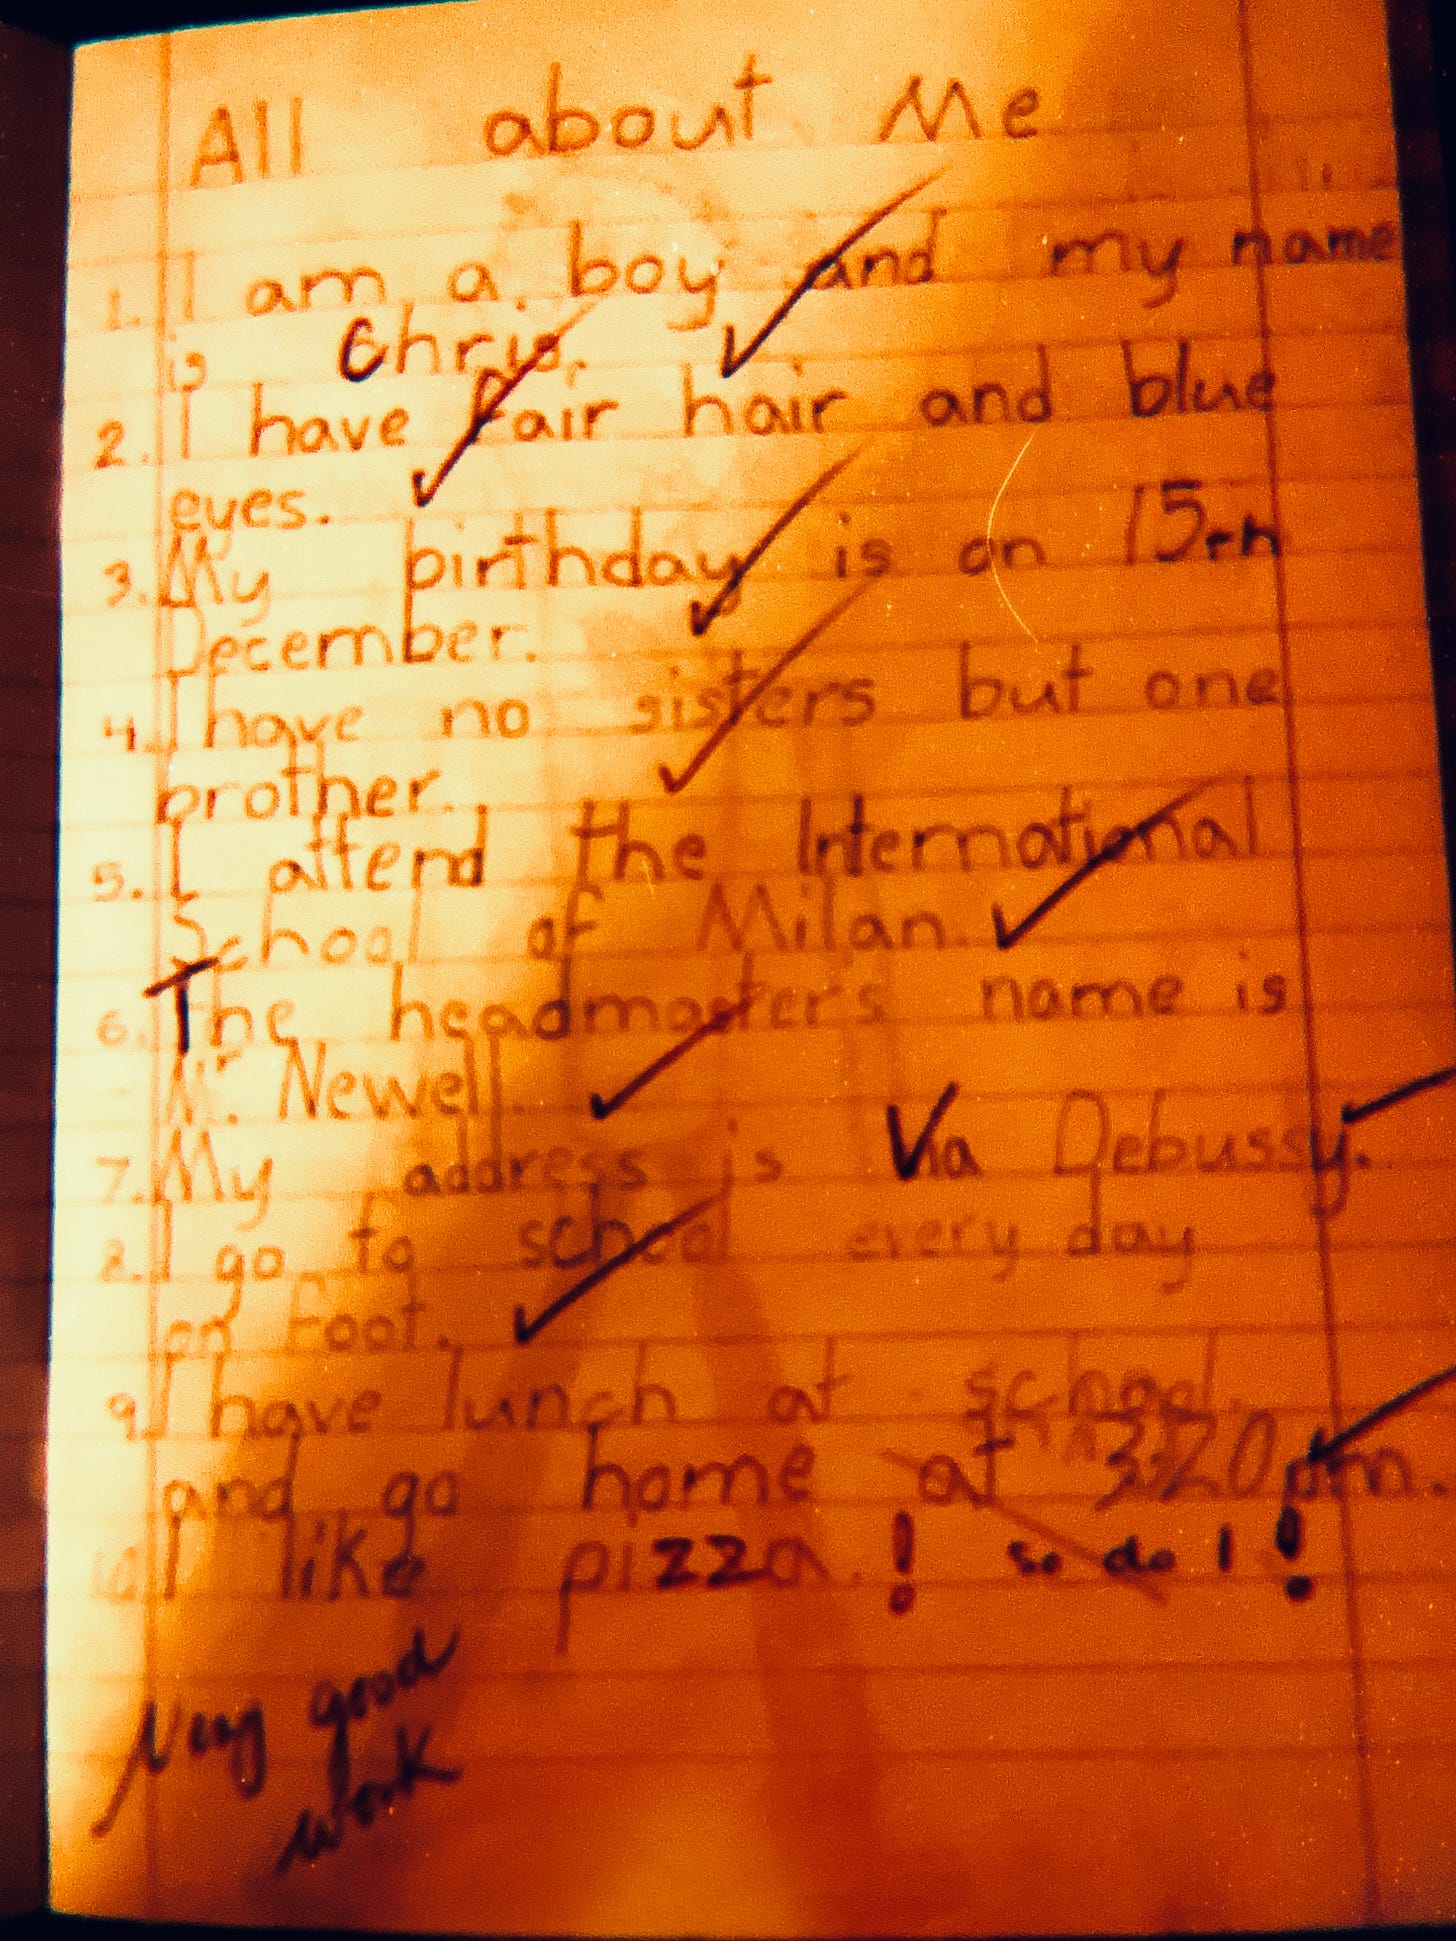 All about Me
1. I am a boy and my name
is Chris.
2. I have fair hair and blue
eyes.
3. My birthday is on 15th
December.
4. I have no sisters but one
brother.
5. I attend the International
School of Milan.
6. The headmasters name is
Mr. Newell.
7. My address is Via Debussy.
8. I go to school every day
on foot.
9. I have lunch at school
and go home at 3:20 pm.
10. I like pizza.! so do I!
Very good
work